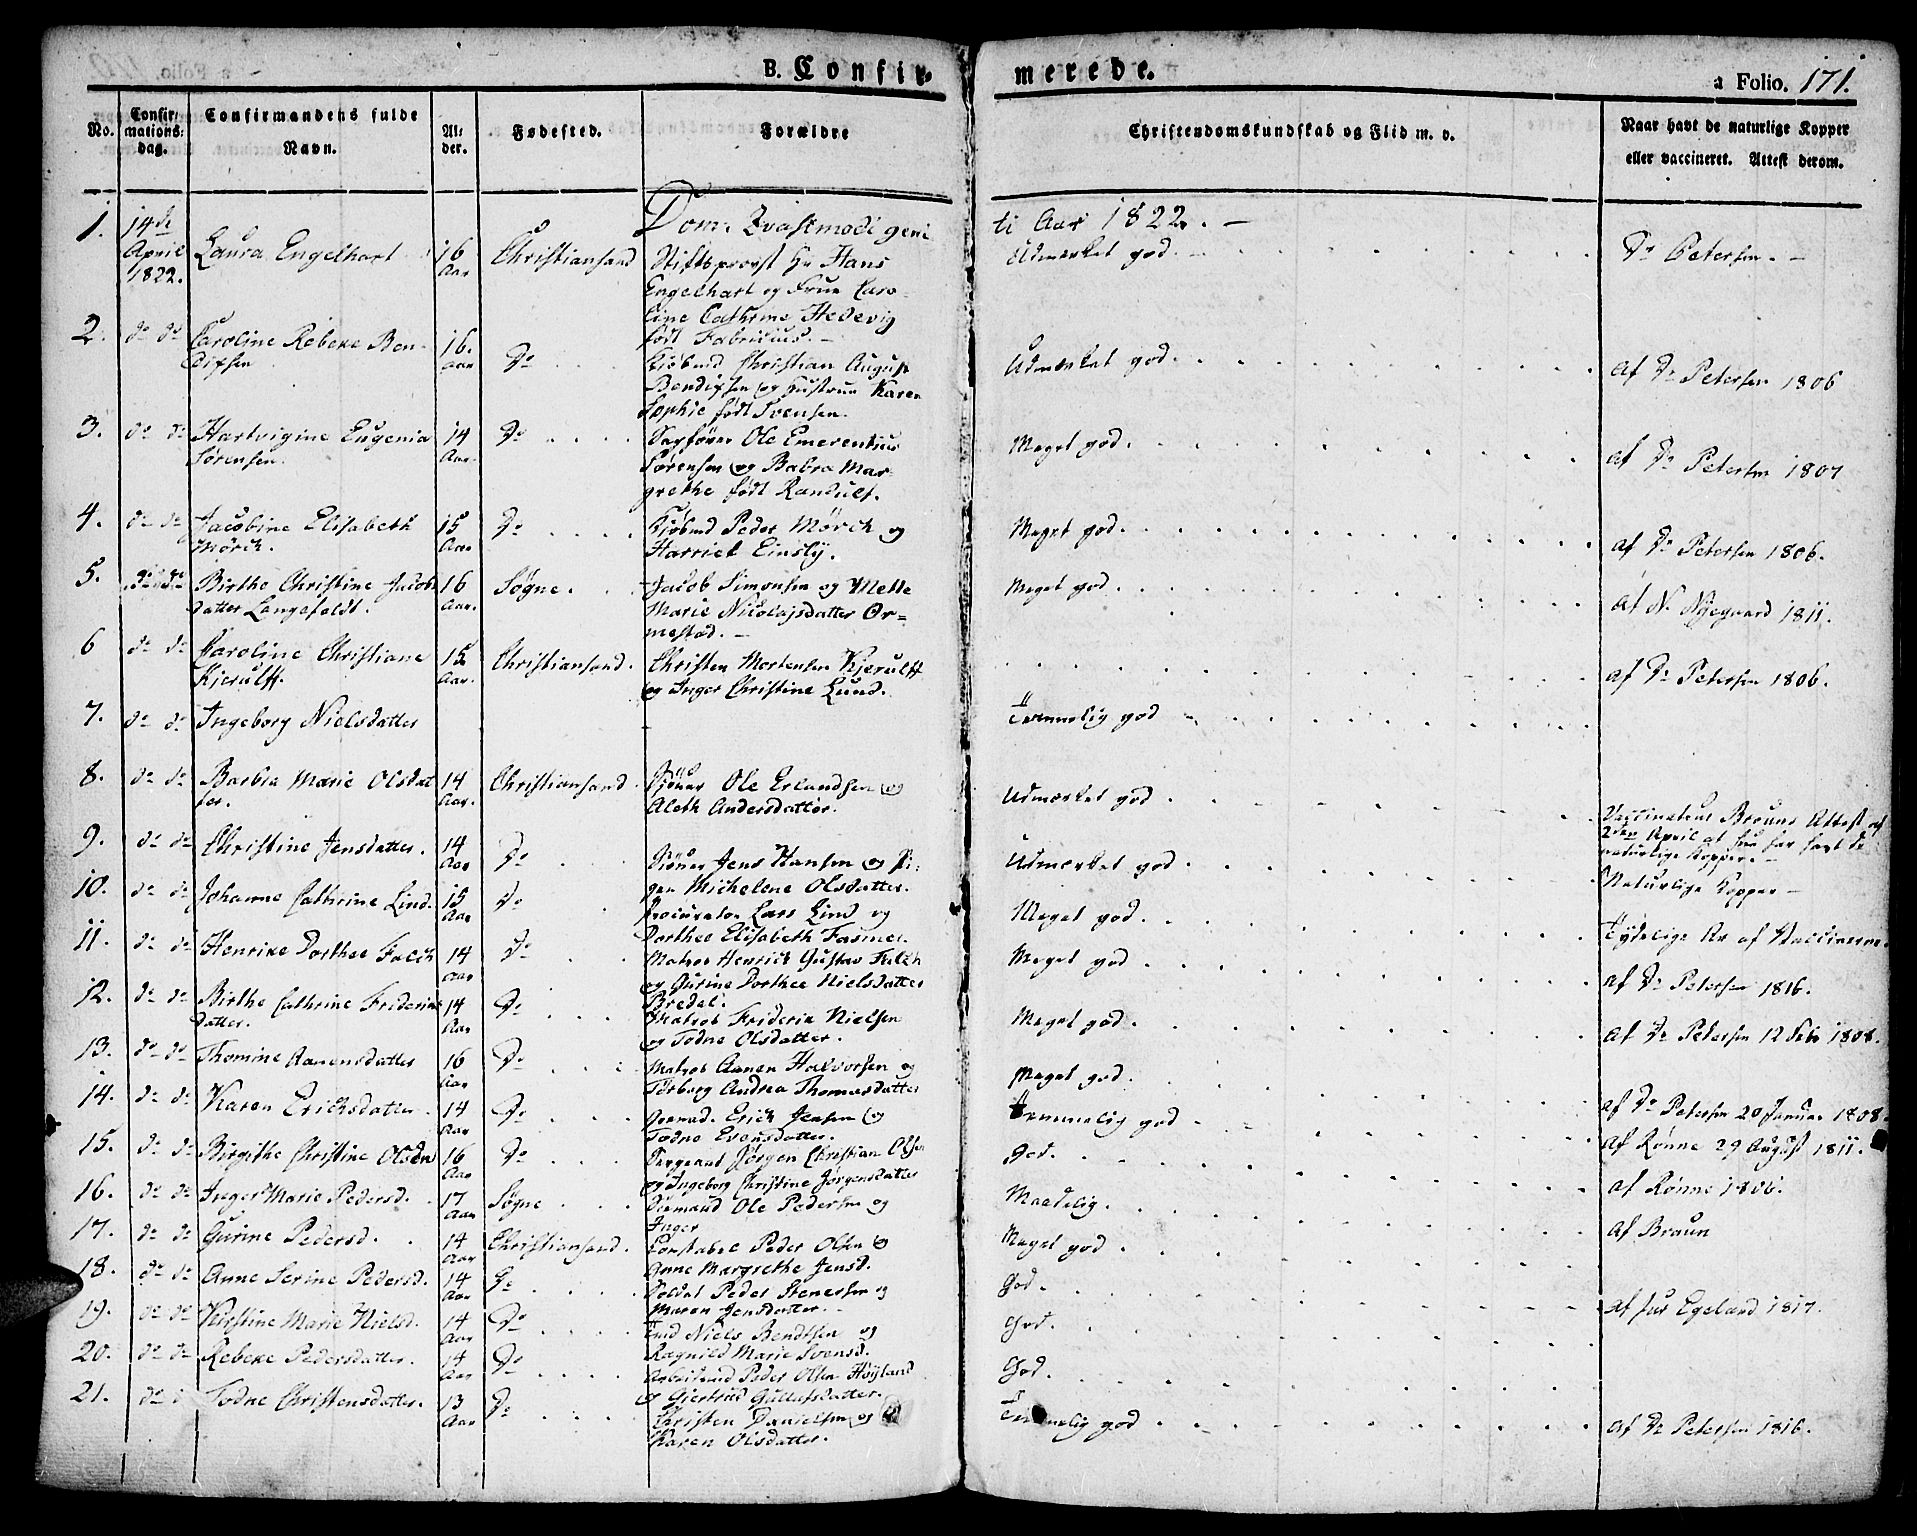 B. Confirmerede.
a Folio. 171.
No.
Confirmations: dag.
Confirmandens fulde Navn.
Alder.
Fødested.
Forældre
Christendomskundskab og Flid m. v.
Naar havt de naturlige Kopper eller vaccineret. Attest derom.
Dom: Qvasimodi geniti Aar 1822. –
1. 14de April 1822. Laura Engelhart 16 Aar Christiansand Stiftsprovst Hr Hans Udmærket god. Dr Petersen. –
Engelhart og Frue Caro-
line Cathrine Hedevig
født Fabricius. –
2. do do Caroline Rebeke Ben- 16. Aar Do Kiøbmd Christian August Udmærket god. af Dr Petersen 1806
dixsen Bendixsen og Hustrue Karen
Sophie født Svensen.
3. do do Hartvigine Eugenia 14 Aar. Do Sagfører Ole Emerentius Meget god. af Dr Petersen 1807
Sørensen. Sørensen og Babra Mar-
grethe født Randulf.
4. do do Jacobine Elisabeth 15 Aar Do Kiøbmd Peder Mørch og Meget god. af Dr Petersen 1806.
Mørch. Harriet Einsly.
5. do do Birthe Christine Jacobs 16 Aar. Søgne. Jacob Simonsen og Mette Meget god. af N. Nyegaard 1811.
datter Langefeldt. Marie Nicolajsdatter Or-
mestad. –
6 do do Caroline Christiane 15 Aar. Christiansand. Christen Mortensen Kjerulff af Dr Petersen 1806.
Kjerulff. og Inger Christine Lund.
7. do do Ingeborg Nielsdatter Temmelig god
8. do do Barbra Marie Olsdat 14 Aar. Christiansand Ole Erlandsen og Udmærket god
ter. Aleth Andersdatter.
Vaccinateur Brauns Attest af
2den April at hun har havt de
naturlige Kopper. –
9. do do Christine Jensdatter. 14 Aar Do Jens Hansen og Pi- Udmærket god Naturlige Kopper –
gen Michelene Olsdatter.
10. do do Johanne Cathrine Lind. 15 Aar Do Procurator Lars Lind og Meget god. Tydelige Ar af Vaccinerne.
Dorthee Elisabeth Fasmer.
11. do do Henrike Dorthee Falch 14 Aar Do Matros Henrich Gustav Falch Meget god af Dr Petersen 1816.
og Gurine Dorthee Nielsdatter
Bredel.
12. do do Birthe Cathrine Friderichs 14 Aar Do Matros Friderik Nielsen Meget god. af Dr Petersen 12 Feb 1808.
datter. og Todne Olsdatter.
13. do do Thomine Aanensdatter 16 Aar Do Matros Aanen Halvorsen og Meget god.
Torborg Andrea Thomasdatter
14. do do Karen Erichsdatter. 14 Aar Do Erich Jensen og Temmelig god af Dr Petersen 20 Januar 1808.
Todne Evensdatter.
15. do do Birgithe Christine Olsdr 16 Aar Do Sergeant Jørgen Christian Olsen God. af Rønne 29 August 1811.
og Ingeborg Christine Jørgensdatter
16. do do Inger Marie Pedersd. 17 Aar Søgne Ole Pedersen og Maadelig. af Rønne 1806.
Inger
17. do do Gurine Pedersd. 14 Aar Christiansand. Constabel Peder Olsen og Meget god af Braun
Anne Margrethe Jensd.
18. do do Anne Serine Pedersd. 14 Aar Do Soldat Peder Stenersen og God.
Maren Jensdatter.
19. do do Kirstine Marie Nielsd. 14 Aar Do Niels Bendtsen og God. af Egeland 1817.
Ragnild Marie Svensd.
20. do do Rebeke Pedersdatter. 14 Aar Do Arbeidsmd Peder Olsen Høyland God.
og Giertrud Gullefsdatter.
21. do d Todne Christensdatter. 13 Aar Do Christen Danielsen og Temmelig god af Dr Petersen 1816.
Karen Olsdatter.